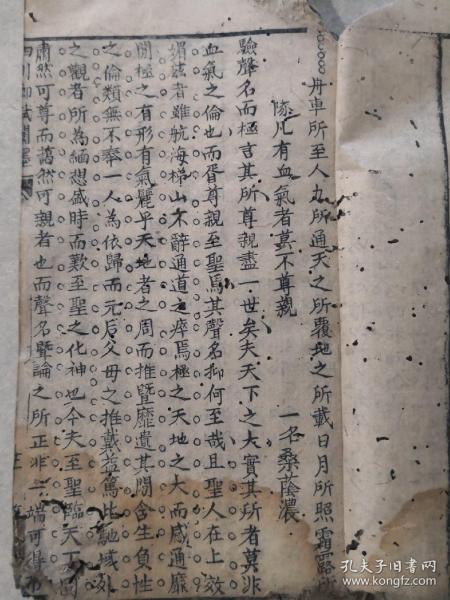 舟車所至人力所通天之所覆地之所載日月所照霜露所
隊凡有血氣者莫不尊親
一名桑蔭濃
驗聲名而極言其所尊親盡一世矣夫天下之大實其所者莫非
血氣之倫也而胥尊親至聖焉其聲名抑何至哉且聖人在上效
媚茲者雖航海梯山不辭通道之瘁焉極之天地之大而感通靡
間極之有形有氣麗乎天地者之周而推暨靡遺其間含生負性
之倫類無不奉一人為依歸而元后父母之推戴益篤此馳域外
之觀者所為緬想盛時而歎至聖之化神也今夫至聖臨天下
肅然可尊而藹然可親者也而聲名暨論之所正非一端可得
四川鄉試闈墨
孔夫子旧书网